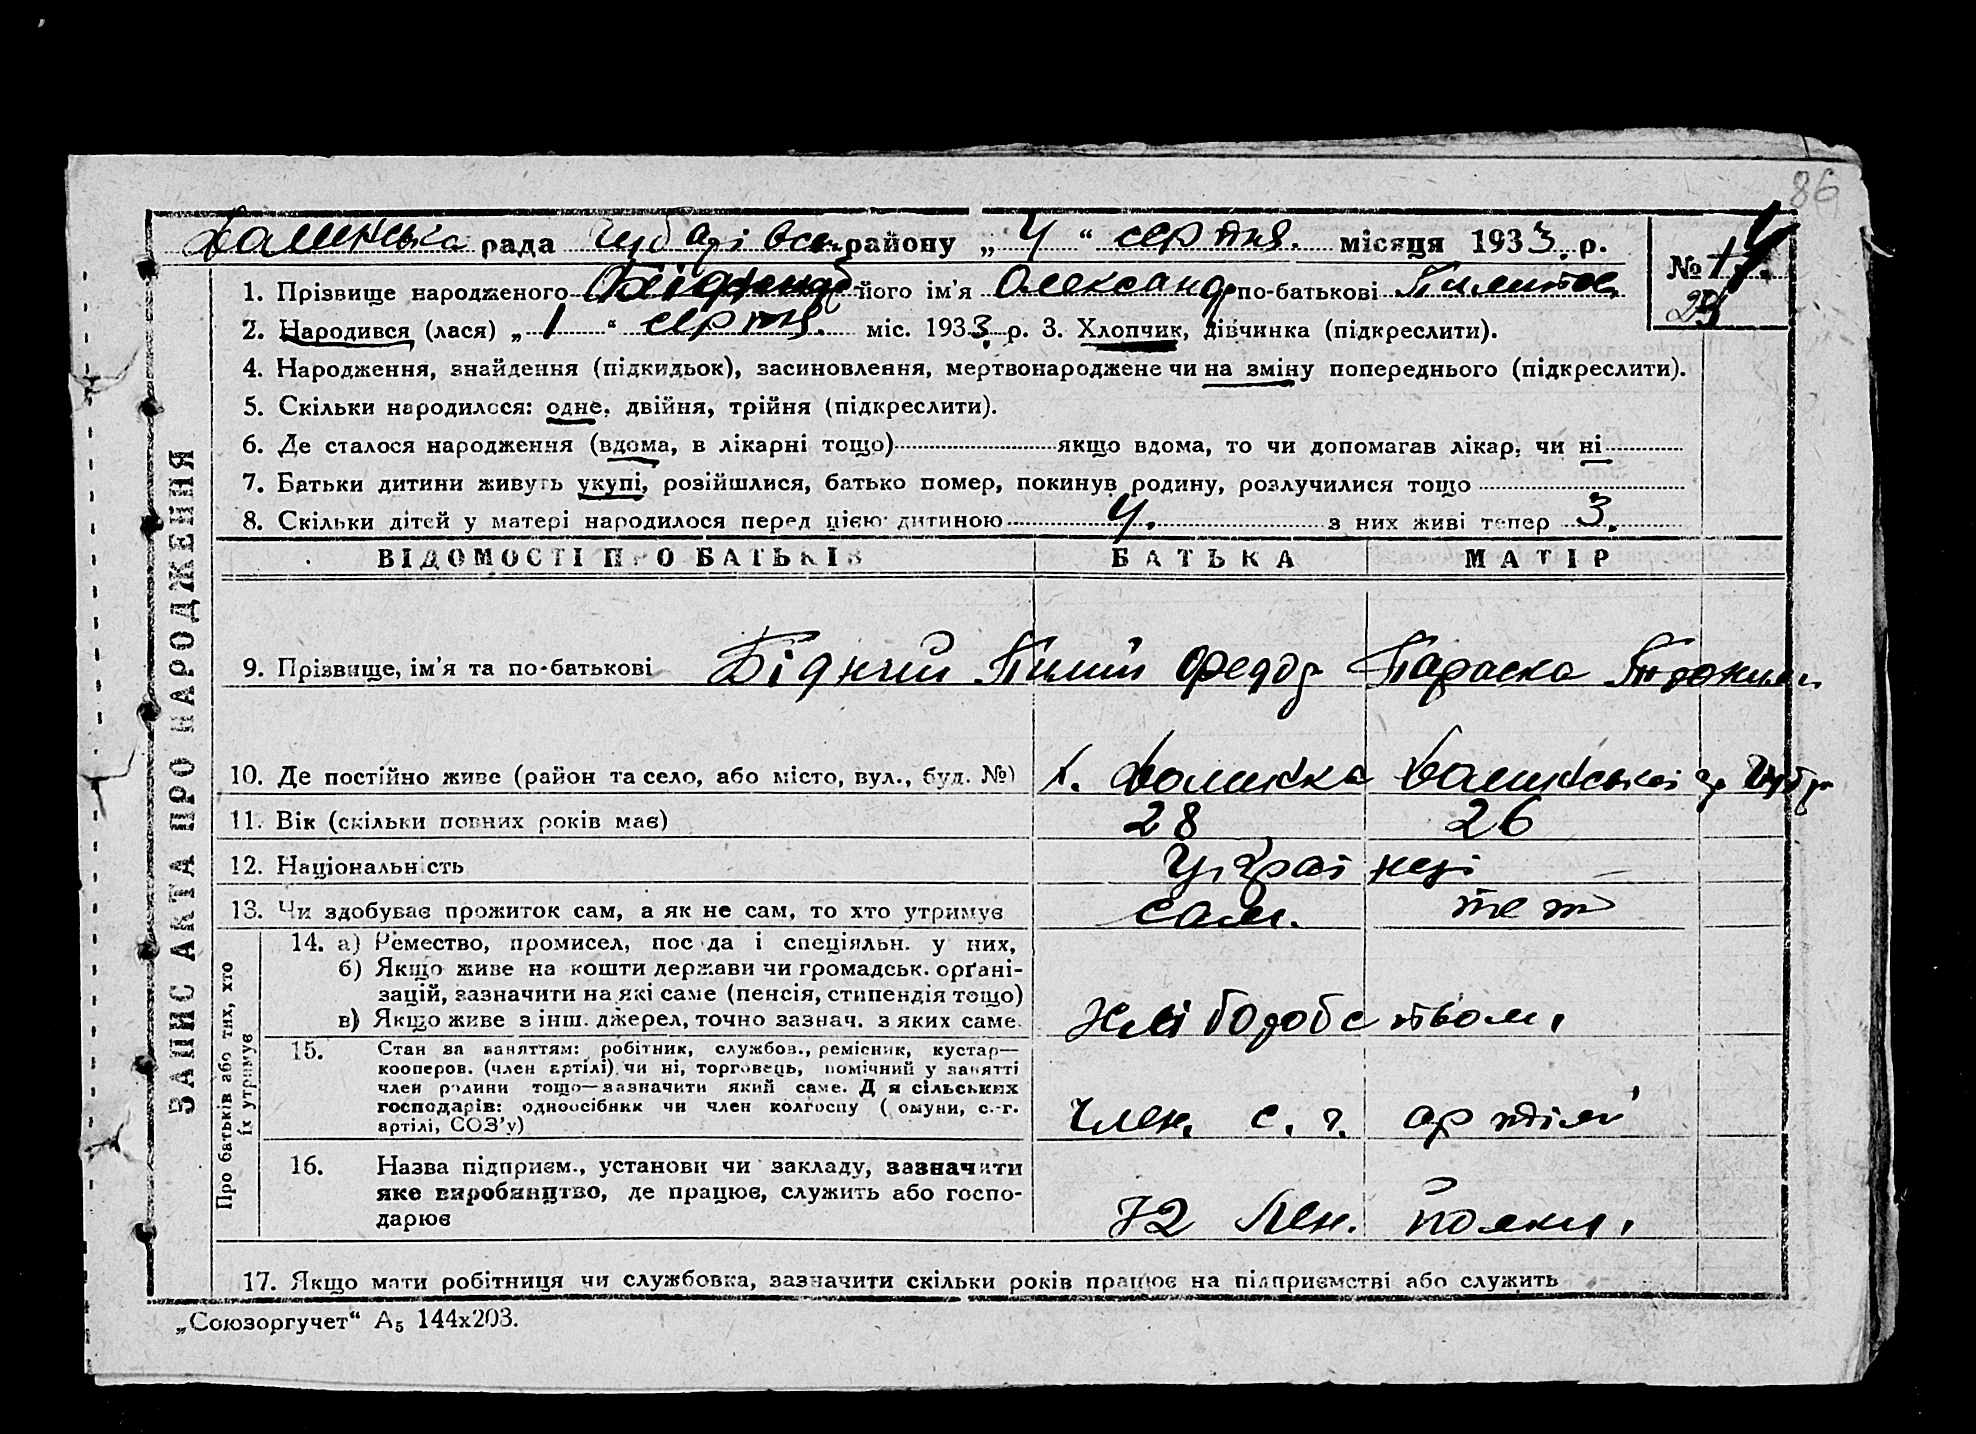 86
Долинська рада Чубарівськ району „ 4 “ серпня. місяця 1933. р.
№ 14.
1. Прізвище народженого Бідний його ім'я Олександр по-батькові Пилипов.
2. Народився (лася) „ 1 “ серпня. міс. 1933. р. 3. Хлопчик, дівчинка (підкреслити).
4. Народження, знайдення (підкидьок), засиновлення, мертвонароджене чи на зміну попереднього (підкреслити).
5. Скільки народилося: одне, двійня, трійня (підкреслити).
6. Де сталося народження (вдома, в лікарні тощо) якщо вдома, то чи допомагав лікар, чи ні
7. Батьки дитини живуть укупі, розійшлися, батько помер, покинув родину, розлучилися тощо
8. Скільки дітей у матері народилося перед цією дитиною 4. з них живі тепер 3.
ВІДОМОСТІ ПРО БАТЬКІВ БАТЬКА МАТІР
9. Прізвище, ім'я та по-батькові Бідний Пилип Федор Параска
10. Де постійно живе (район та село, або місто, вул., буд. №) х. Долинка Долинської
11. Вік (скільки повних років має) 28 26
12. Національність Українці
13. Чи здобуває прожиток сам, а як не сам, то хто утримує сам. теж
14. а) Ремество, промисел, посада і спеціяльн. у них,
б) Якщо живе на кошти держави чи громадськ. органі-
зацій, зазначити на які саме (пенсія, стипендія тощо)
в) Якщо живе з інш. джерел, точно зазнач. з яких саме.
Хліборобством.
15. Стан за заняттям: робітник, службов., ремісник, кустар—
кооперов. (член артілі) чи ні, торговець, помічний у занятті
член родини тощо—зазначити який саме. Для сільських
господарів: одноосібник чи член колгоспу (комуни, с.-г.
артілі, СОЗ'у)
Член. с. г. артілі
16. Назва підприєм., установи чи закладу, зазначити
яке виробництво, де працює, служить або госпо-
дарює
12 Лен.
17. Якщо мати робітниця чи службовка, зазначити скільки років працює на підприємстві або служить
„Союзоргучет“ А5 144х203.
ЗАПИС АКТА ПРО НАРОДЖЕННЯ
Про батьків або тих, хто
їх утримує